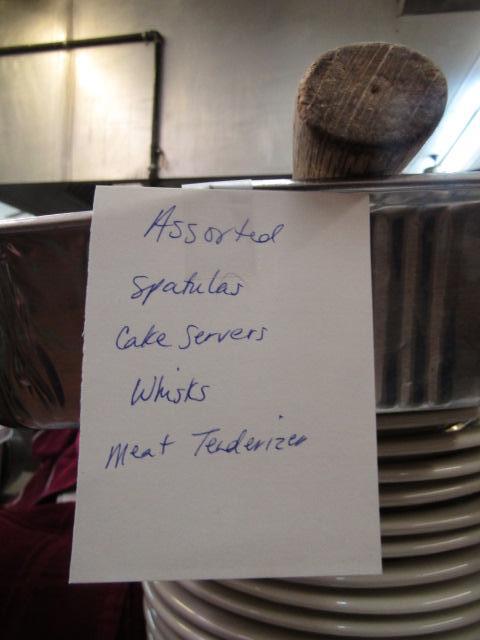 Assorted
Spatulas
Cake Servers
Whisks
Meat Tenderizer